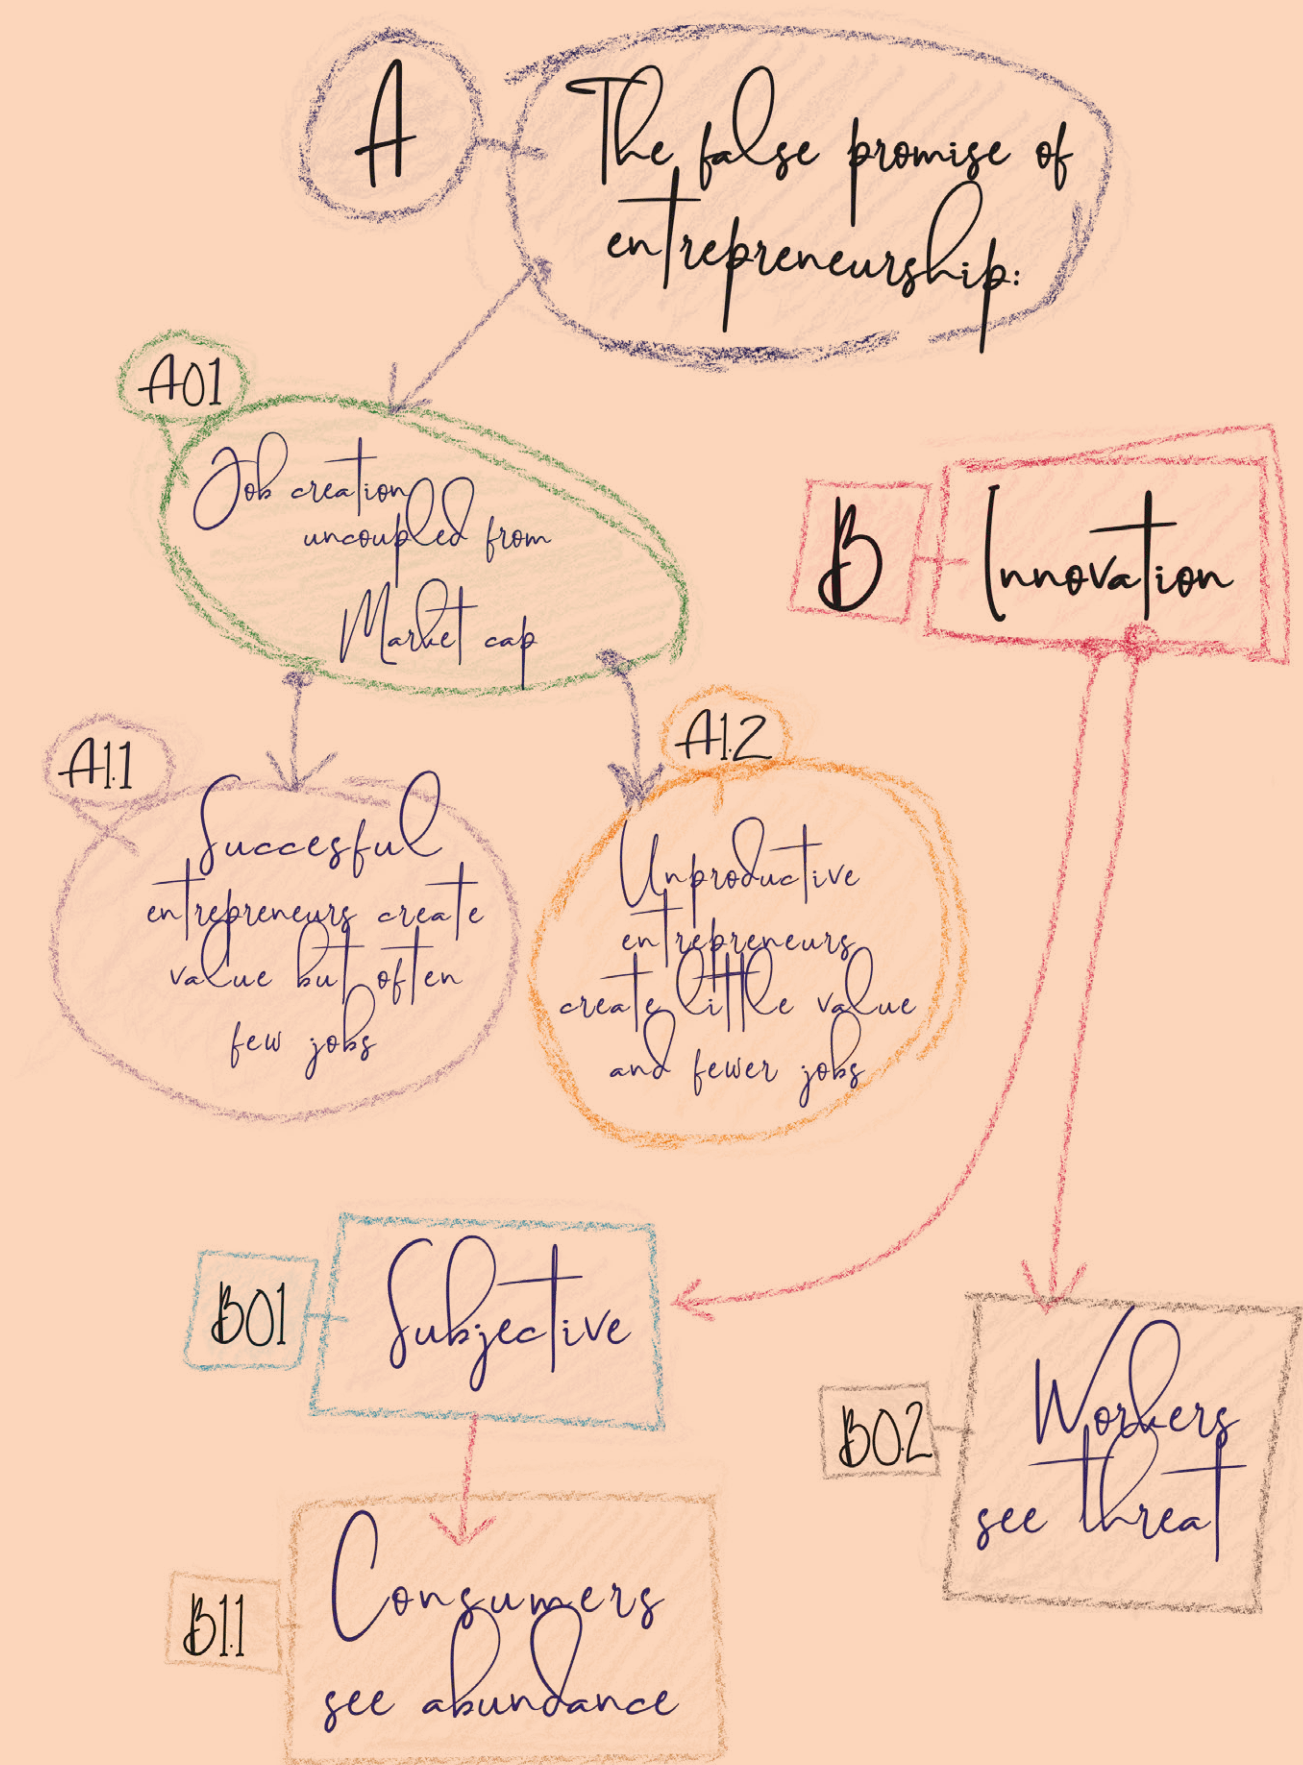 A
The false promise of
entrepreneurship:
A01
Job creation
uncoupled from
Market cap
A1.1
Succesful
entrepreneurs create
value but often
few jobs
A1.2
Unproductive
entrepreneurs
create little value
and fewer jobs
B
Innovation
B01
Subjective
B0.2
Workers
see threat
B1.1
Consumers
see abundance